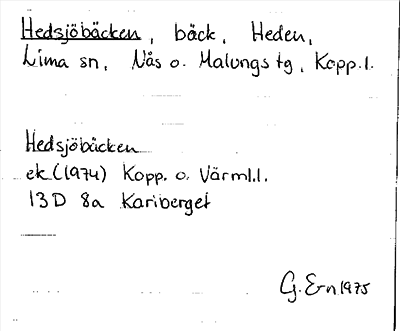 Hedsjöbäcken, bäck, Heden,
Lima sn, Nås o. Malungs tg, Kopp.l.
Hedsjöbäcken
ek (1974) Kopp. o. Värml.l.
13D 8a Kariberget
G. E-n 1975